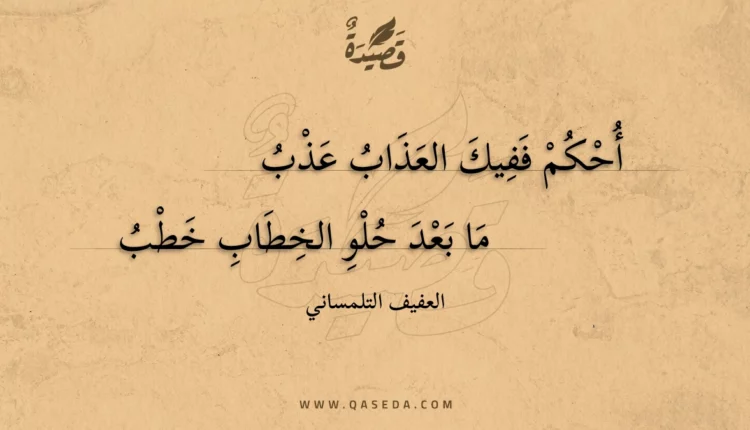 قَصِيدَةٌ
أُحْكُمْ فَفِيكَ العَذَابُ عَذْبُ
مَا بَعْدَ حُلْوِ الخِطَابِ خَطْبُ
العفيف التلمساني
WWW.QASEDA.COM